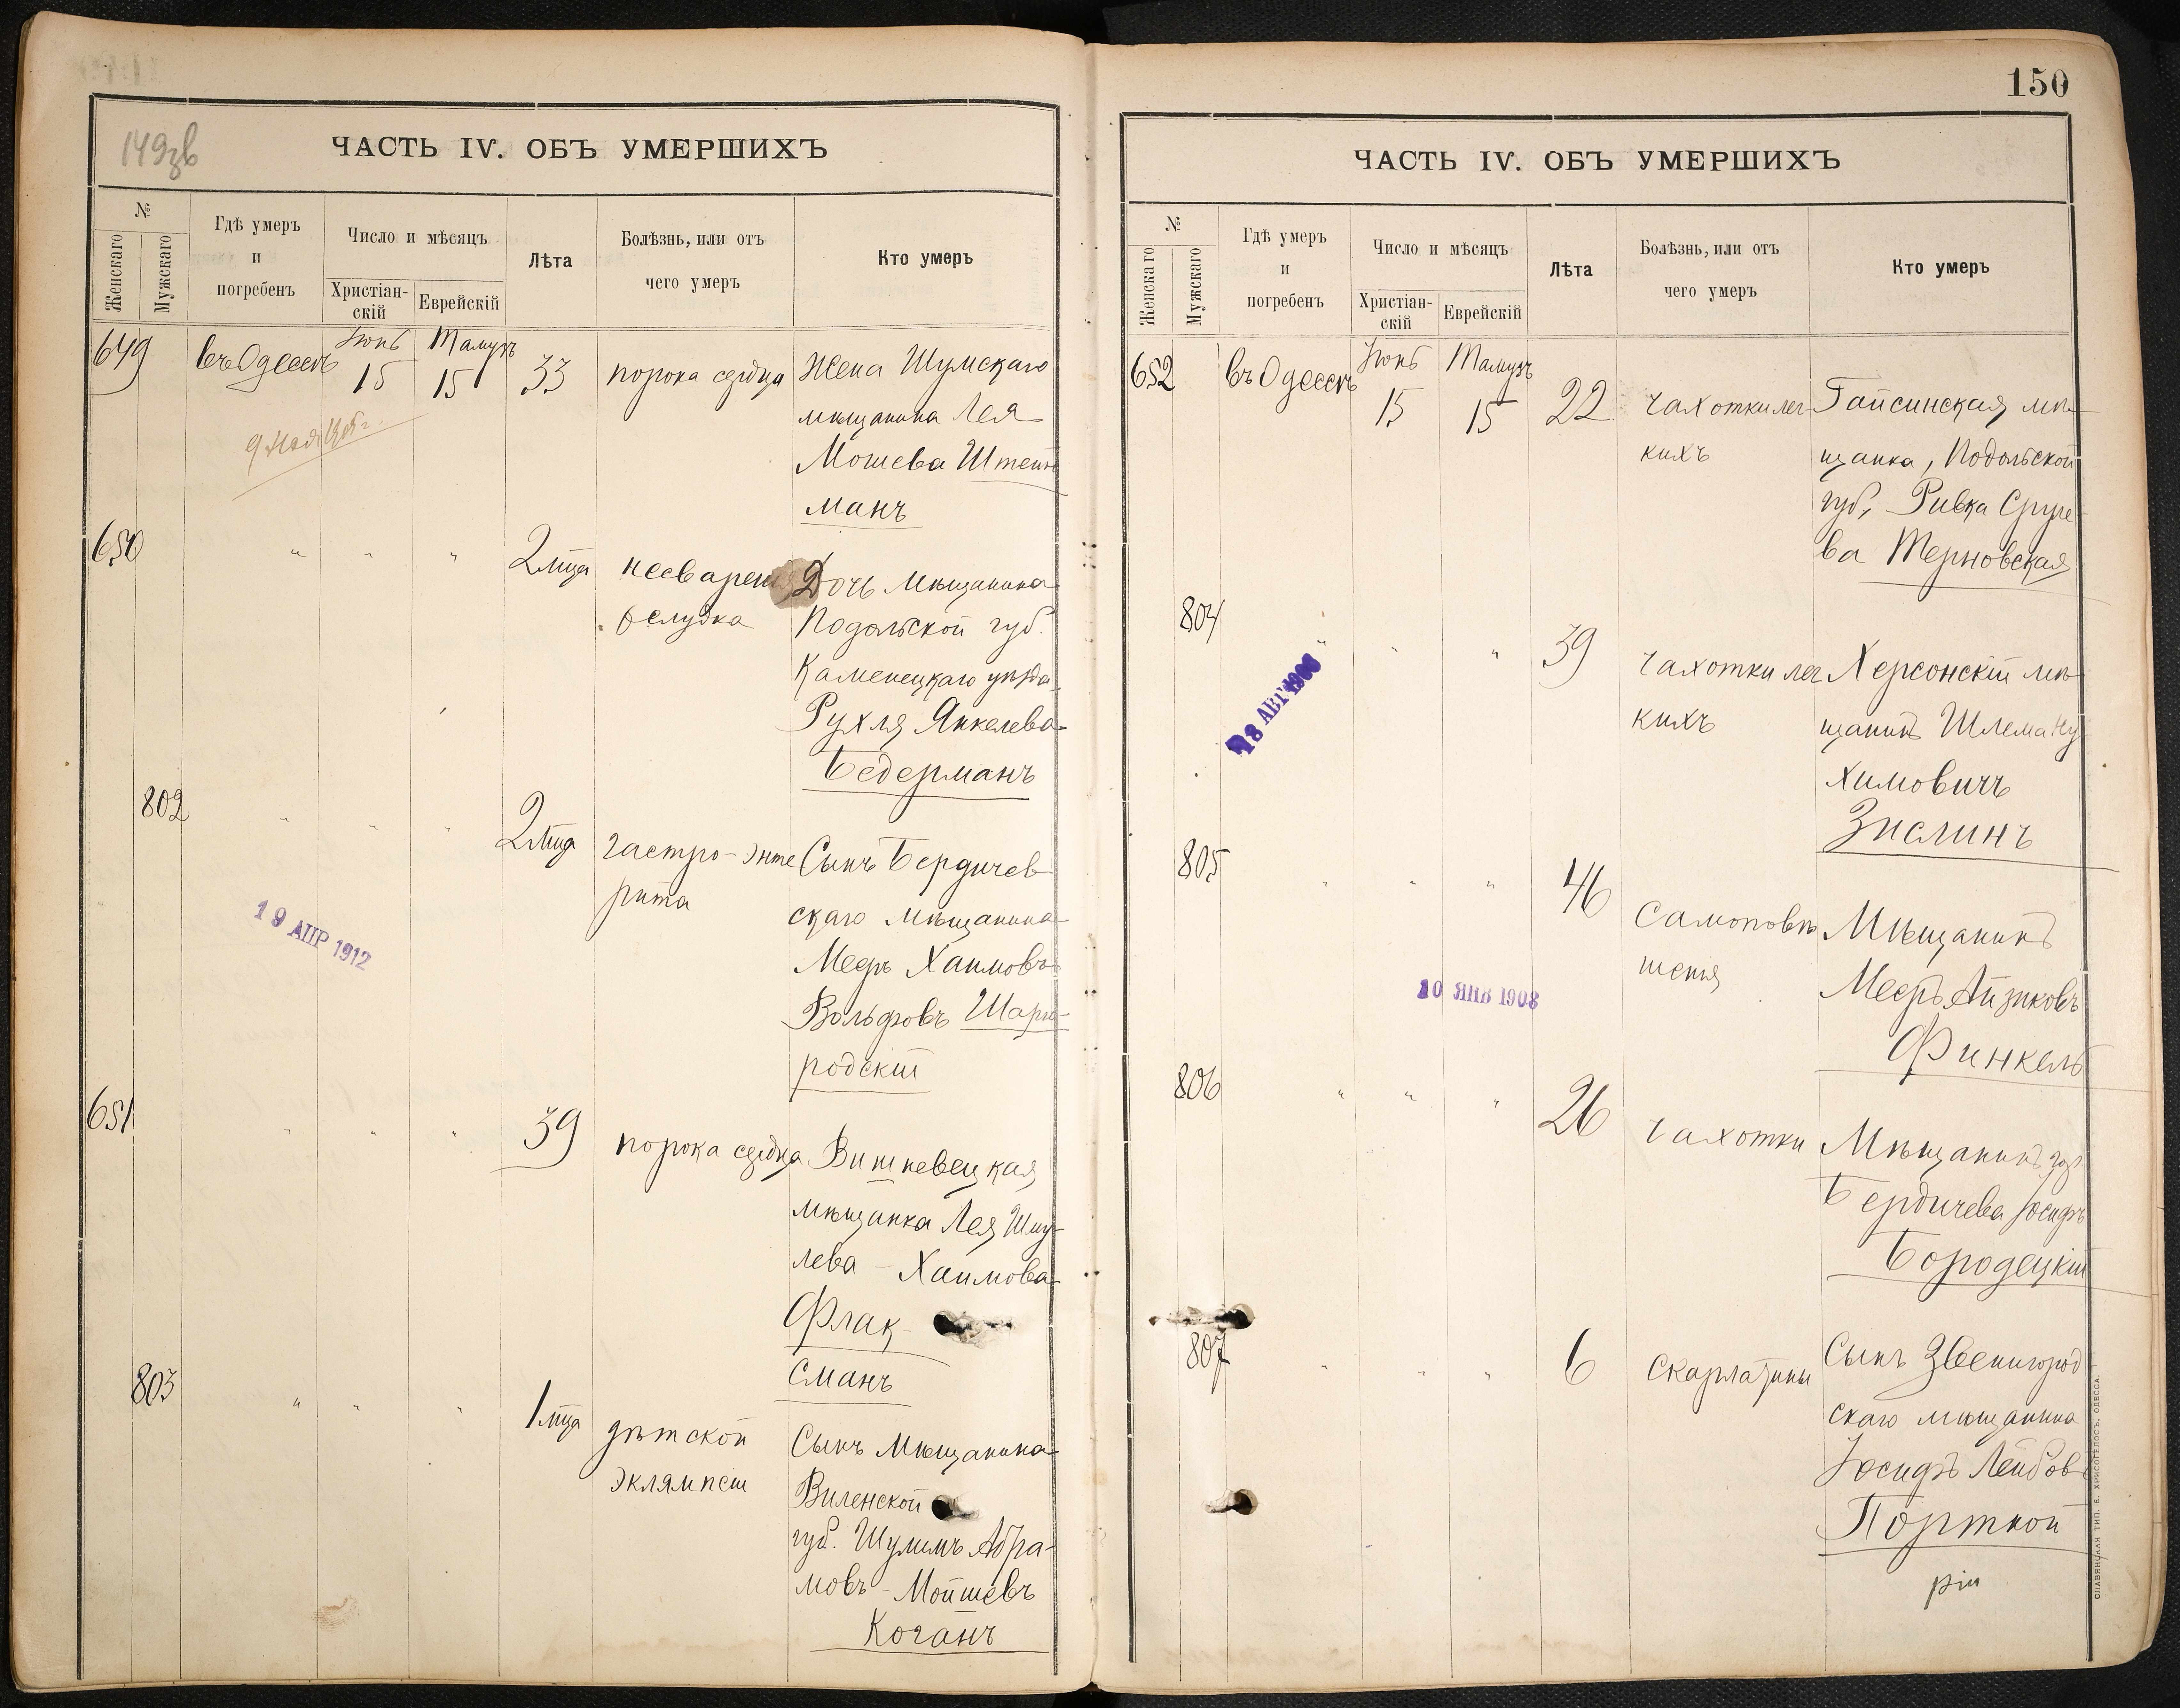 149зв
ЧАСТЬ IV. ОБЪ УМЕРШИХЪ
№
Женскаго
Мужскаго
Гдѣ умеръ
и
погребенъ
Число и мѣсяцъ
Христіан-
скій
Еврейскій
Лѣта
Болѣзнь, или отъ
чего умеръ
Кто умеръ
649
въ Одессѣ
Іюнь
15
Тамузъ
15
33
порока сердца
Жена Шумскаго
мѣщанина Лея
Мошева Штейн
манъ
650
" " "
2 мца
несварен
желудка
Дочь мѣщанина
Подольской губ.
Каменецкаго уѣзда
Рухля Янкелева
Бедерманъ
802
" " "
2 мца
гастро-энте
рита
Сынъ Бердичев
скаго мѣщанина
Мееръ Хаимовъ
Вольфовъ Шарго-
родскій
19 АПР 1912
651
" " "
39
порока сердца
Вишневецкая
мѣщанка Лея Шму-
лева - Хаимова
Флак-
сманъ
803
" " "
1 мца
дѣтской
эклямпсіи
Сынъ Мѣщанина
Виленской
губ. Шулимъ Абра-
мовъ - Мойшевъ
Коганъ
150
ЧАСТЬ IV. ОБЪ УМЕРШИХЪ
№
Женскаго
Мужскаго
Гдѣ умеръ
и
погребенъ
Число и мѣсяцъ
Христіан-
скій
Еврейскій
Лѣта
Болѣзнь, или отъ
чего умеръ
Кто умеръ
652
въ Одессѣ
Іюнь
15
Тамузъ
15
22
чахотки лег-
кихъ
Гайсинская мѣ-
щанка, Подольской
губ, Ривка Сруле-
ва Терновская
804
" " "
39
чахотки лег
кихъ
Херсонскій мѣ-
щанинъ Шлема Ну
химовичъ
Зислинъ
805
" " "
46
Самоповѣ
шенія
Мѣщанинъ
Мееръ Айзиковъ
Финкель
10 ЯНВ 1908
806
" " "
26
чахотки
Мѣщанинъ гор
Бердичева Іосифъ
Бородецкій
807
" " "
6
Скарлатины
Сынъ Звенигород
скаго мѣщанина
Іосифъ Лейбов
Портной
СЛАВЯНСКАЯ ТИП. Е. ХРИСОГЕЛОСЪ, ОДЕССА.